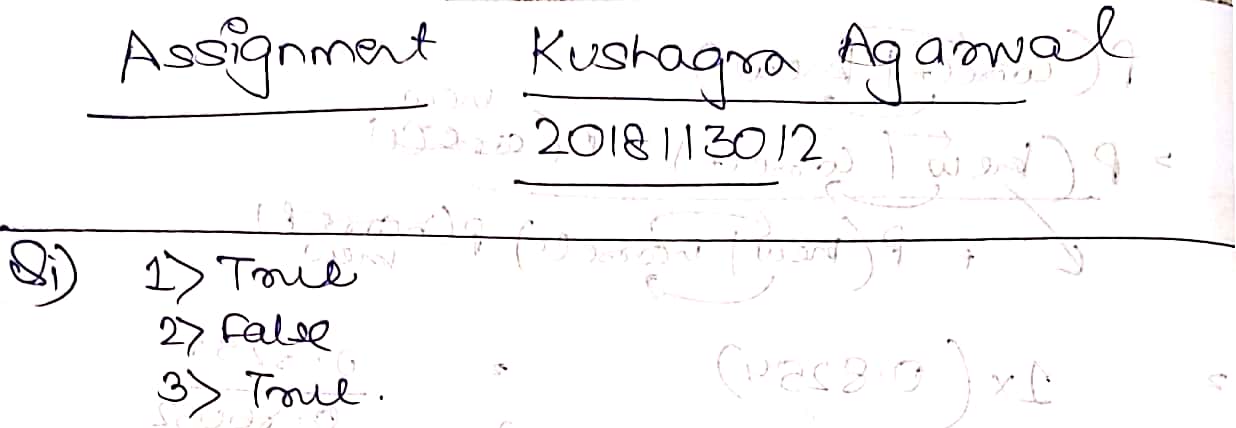 Assignment Kushagra Agarwal
2018113012
Q1) 1> True
2> False
3> True.